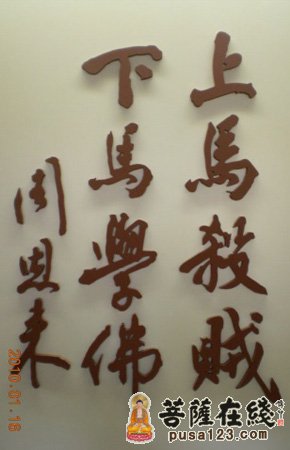 上馬殺賊
下馬學佛
周恩来
2010.01.16
菩薩在綫
pusa123.com